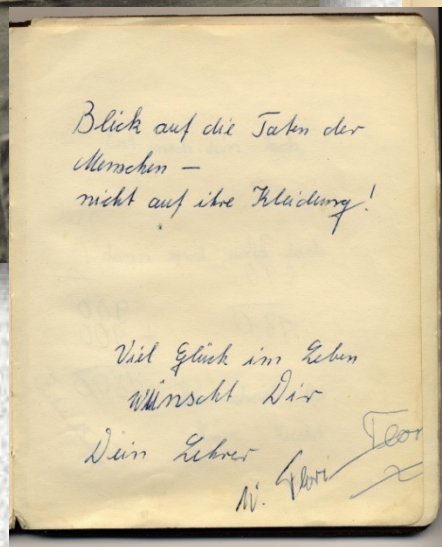 Blick auf die Taten der
Menschen –
nicht auf ihre Kleidung!
Viel Glück im Leben
wünscht Dir
Dein Lehrer
W.